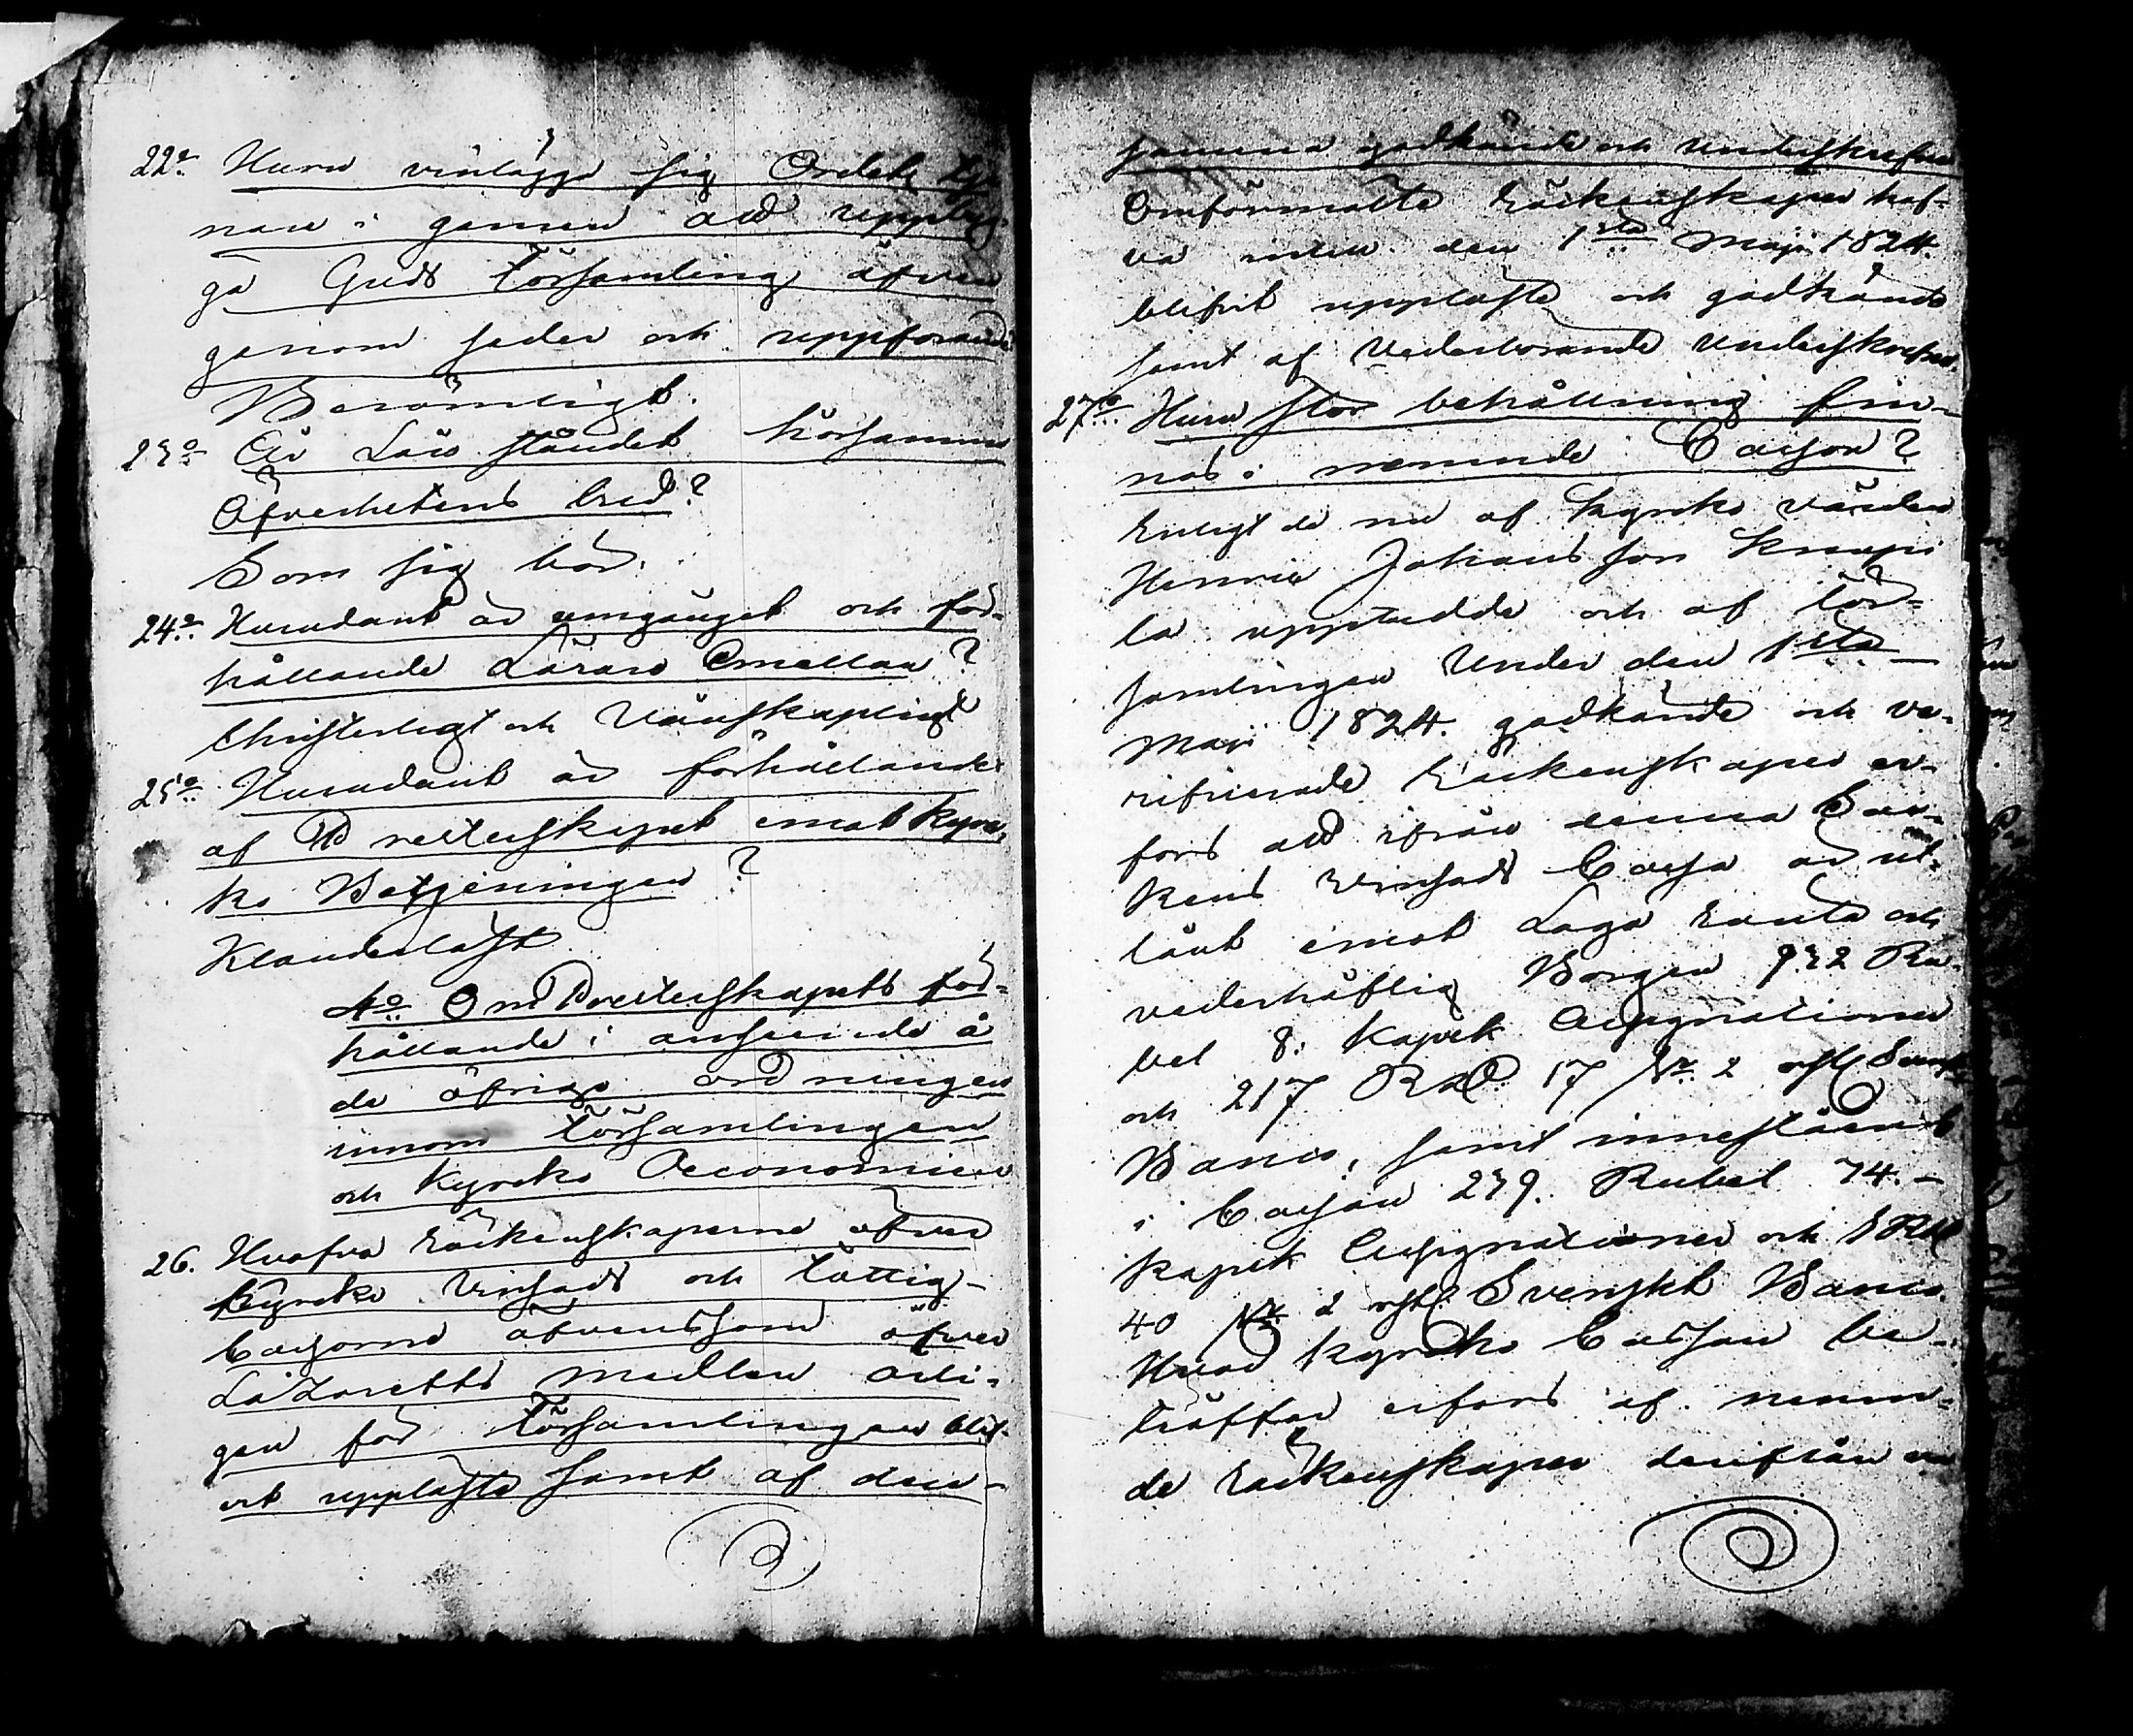 22:o Huru vinlägga sig Ordets tje-
nare i gemen att uppbyg-
ga Guds Församling äfven
genom seder och uppförande
Berömligt.
23:o Är Läro ståndet hörsamme
Öfverhetens bud?
Som sig bör.
24:o Hurudant är umgänget och för-
hållande Lärare Emellan?
Christerligt och Vänskapligt
25:o Hurudant är förhållande
af Presterskapet emot Kyrc-
ko Betjeningen?
Klanderlöst
4:o Om Presterskapets för-
hållande i anseende å
de öfriga ordningen
innom Församlingen
och Kyrcko Oeconomien
26. Hvafva Räckenskaperne öfver
Kyrcko Vinsäds och Fattig-
Cassorne äfvensom öfver
Lazaretts medlen ärli-
gen för Församlingen blif-
vit uppläste samt af den-
samma godkände och Underskrefne
Omförmälte Räckenskaper haf-
va intill den 1sta Maji 1824.
blifvit uppläste och godkände
samt af Vederbörande Underskrefne.
27:o Huru stor behållning fin-
nes i nemnde Cassor?
Enligt de nu af Kyrcko värden
Henric Johansson Knaapi-
la uppteedde och af För-
samlingen Under den 1sta
Maji 1824. godkände och ve-
rifierade Räckenskaper er-
fors att ifrån denna Soc-
kens Vinsäds Cassa är ut-
lånt emot Laga Ränta och
vederhäftig Borgen 932 Ru-
bel 8. Kopek Assignationer
och 217 Rd 17 sk 2 rst Svenskt
Banco, samt innestående
i Cassan 239. Rubel 74.-
Kopek Assignationer och 1 Rd
40 sk 2 rst Svenskt Banco.
Hvad Kyrcko Cassan be-
träffar erfors af nemn-
de Räckenskaper derifrån va